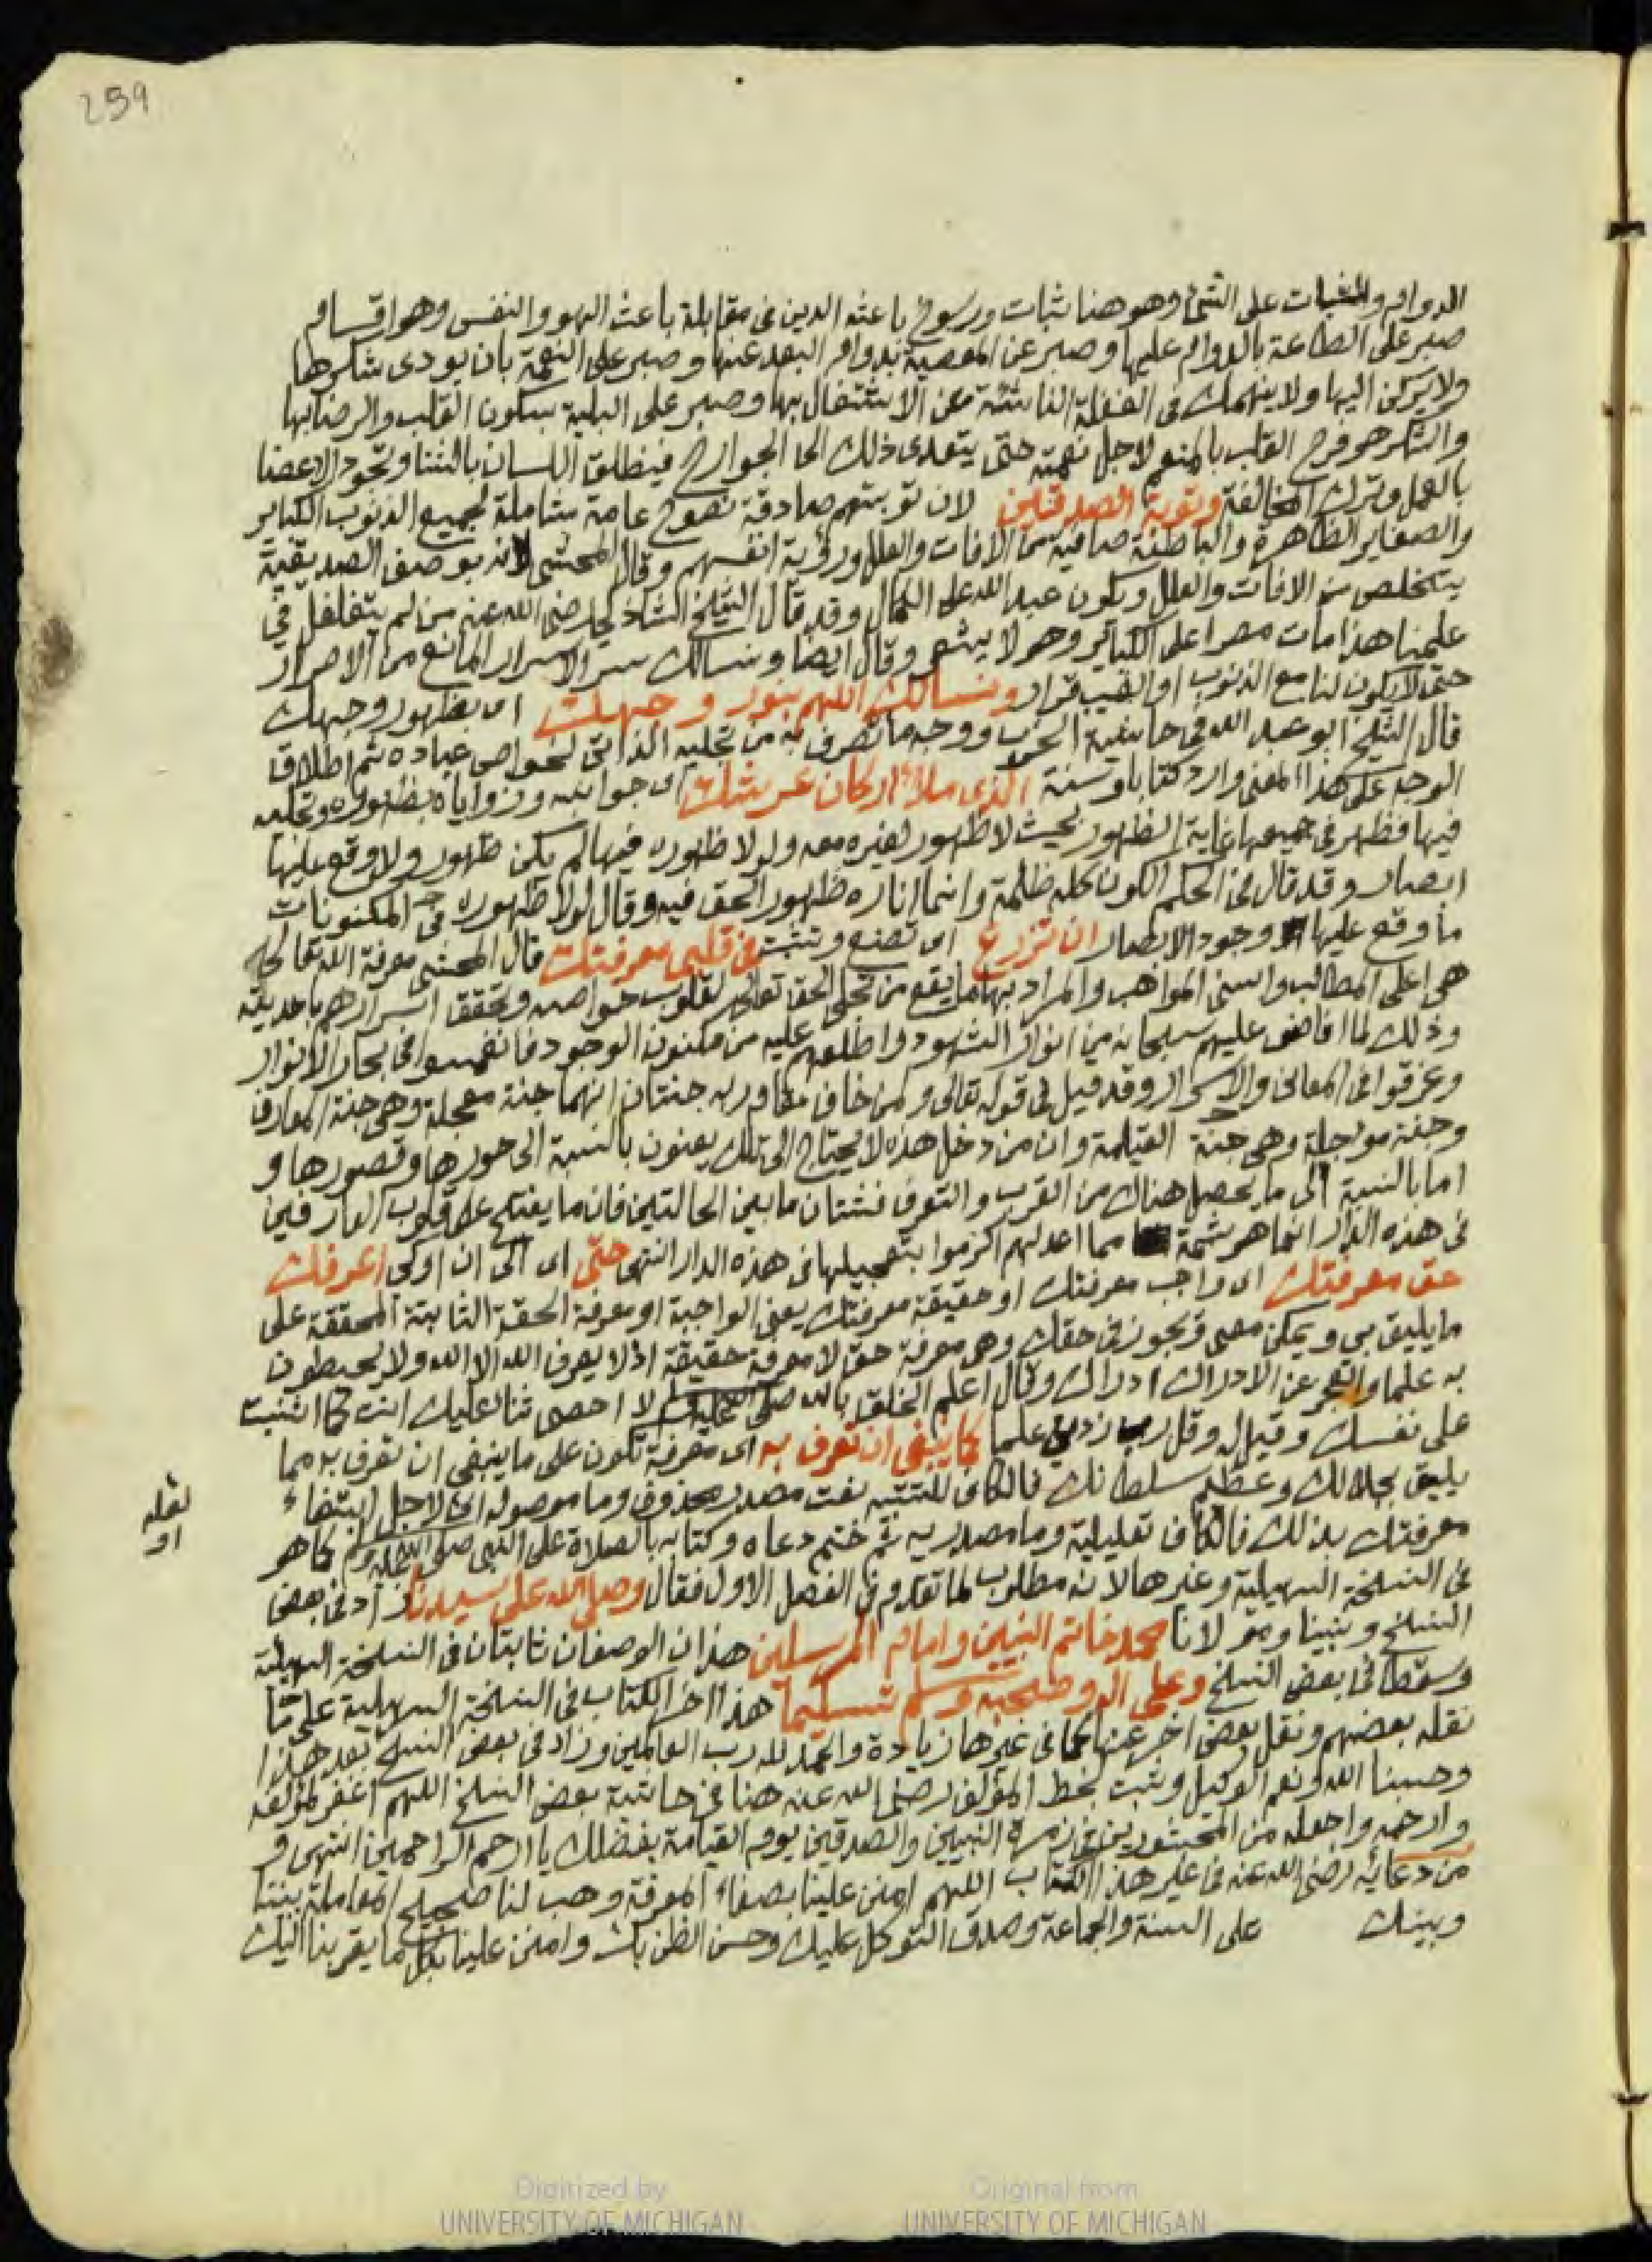 259
الدوام والثبات على الشئ وهو هنا ثبات ورسوخ باعثه الدين فى مقابلة باعث الهوو النفس وهو اقسام
صبر على الطاعة بالدوام عليها وصبر عن المعصية بدوام البعد عنها وصبر على النعمة بان يودى شكرها
ولا يركن اليها ولا ينهمك فى الغفلة الناشئة عن الاشتغال بها وصبر على البلية بسكون القلب والرضا بها
والشكر هو فرح القلب بالمنعم لاجل نعمته حتى يتعدى ذلك الى الجوارح فينطلق اللسان بالثنا وتجود الاعضا
بالعمل وترك المخالفة وتوبة الصديقين لان توبتهم صادقة نصوح عامة شاملة لجميع الذنوب الكباير
والصغاير الظاهرة والباطنة صافية من الافات والعلل ورؤية انفسهم وقال المحشى لانه بوصف الصديقية
يتخلص من الافات والعلل ويكون عبد الله على الكمال وقد قال الشيخ الشاذلى رضى الله عنه من لم يتغلغل فى
علمنا هذا مات مصرا على الكباير وهو لا يشعر وقال ايضا ونسالك سر الاسرار المانع من الاصرار
حتى لا يكون لنا مع الذنوب او العيب قرار ونسالك اللهم بنور وجهك اى بظهور وجهك
قال الشيخ ابو عبد الله فى حاشية الحزب ووجه ما تعرف به من تجليه الذاتى لخواص عباده ثم اطلاق
الوجه على هذا المعنى وارد كتابا وسنة الذى ملأ اركان عرشك اى جوانبه وزواياه بظهوره وتجليه
فيها فظهر فى جميعها غاية الظهور بحيث لا ظهور لغيره معه ولولا ظهوره فيها لم يكن ظهور ولا وقع عليها
ابصار وقد قال فى الحكم الكون كله ظلمة وانما اناره ظهور الحق فيه وقال لولا ظهوره فى المكنونات
ما وقع عليها وجود الابصار ان تزرع اى تضع وتثبت فى قلبى معرفتك قال المحشى معرفة الله تعالى
هى اعلى المطالب واسنى المواهب والمراد بها ما يقع من تجلى الحق تعالى لقلوب خواصه وتحقق اسرارهم باحديته
وذلك لما افاض عليهم سبحانه من انوار الشهود واطلعهم عليه من مكنون الوجود فانغمسوا فى بحار الانوار
وغرقوا فى المعانى والاسرار وقد قيل فى قوله تعالى ولمن خاف مقام ربه جنتان انهما جنة معجلة وهى جنة المعارف
وجنة موجلة وهى جنة القيامة وان من دخل هذه لا يحتاج الى تلك يعنون بالنسبة الى حورها وقصورها و
اما بالنسبة الى ما يحصل هناك من القرب والتعرف فشتان ما بين الحالتين فان ما يفتح على قلوب العارفين
فى هذه الدار انما هو شمة مما اعد لهم اكرموا بتعجيلها فى هذه الدار انتهى حتى اى الى ان او كى اعرفك
حق معرفتك اى واجب معرفتك او حقيقة معرفتك يعنى الواجبة او معرفة الحقة الثابتة المحققة على
ما يليق بى ويمكن معى ويجوز فى حقك وهى معرفة حق لا معرفة حقيقة اذ لا يعرف الله الا الله ولا يحيطون
به علما والعجز عن الادراك ادراك وقال اعلم الخلق بالله صلى الله عليه وسلم لا احصى ثنا عليك انت كما اثنيت
على نفسك وقيل له وقل رب زدنى علما كما ينبغى ان تعرف به اى معرفة تكون على ما ينبغى ان تعرف به مما
يليق بجلالك وعظيم سلطانك فالكاف للتشبيه نعت مصدر محذوف وما موصوله اى لاجل ابتغاء
معرفتك بذلك فالكاف تعليلية وما مصدريه ثم ختم دعاه وكتابه بالصلاة على النبى صلى الله عليه وسلم كما هو
فى النسخة السهيلية وغيرها لانه مطلوب لما تقدم فى الفصل الاول فقال وصلى الله على سيدنا زاد فى بعض
النسخ ونبينا ومولانا محمد خاتم النبيين وامام المرسلين هذان الوصفان ثابتان فى النسخة السهيلية
وسقطا فى بعض النسخ وعلى اله وصحبه وسلم تسليما هذا اخر الكتاب فى النسخة السهيلية على ما
نقله بعضهم ونقل بعض اخر عنها كما فى غيرها زيادة والحمد لله رب العالمين وزاد فى بعض النسخ بعد هذا
وحسبنا الله ونعم الوكيل وثبت بخط المؤلف رضى الله عنه هنا فى حاشية بعض النسخ اللهم اغفر لمؤلفه
وارحمه واجعله من المحشورين فى زمرة النبيين والصديقين يوم القيامة بفضلك يا ارحم الراحمين انتهى و
من دعائه رضى الله عنه فى غير هذا الكتاب اللهم امنن علينا بصفاء المعرفة وهب لنا صحيح المعاملة بيننا
وبينك على السنة والجماعة وصدق التوكل عليك وحسن الظن بك وامنن علينا بكل ما يقربنا اليك
نقله
او
Digitized by
UNIVERSITY OF MICHIGAN
Original from
UNIVERSITY OF MICHIGAN